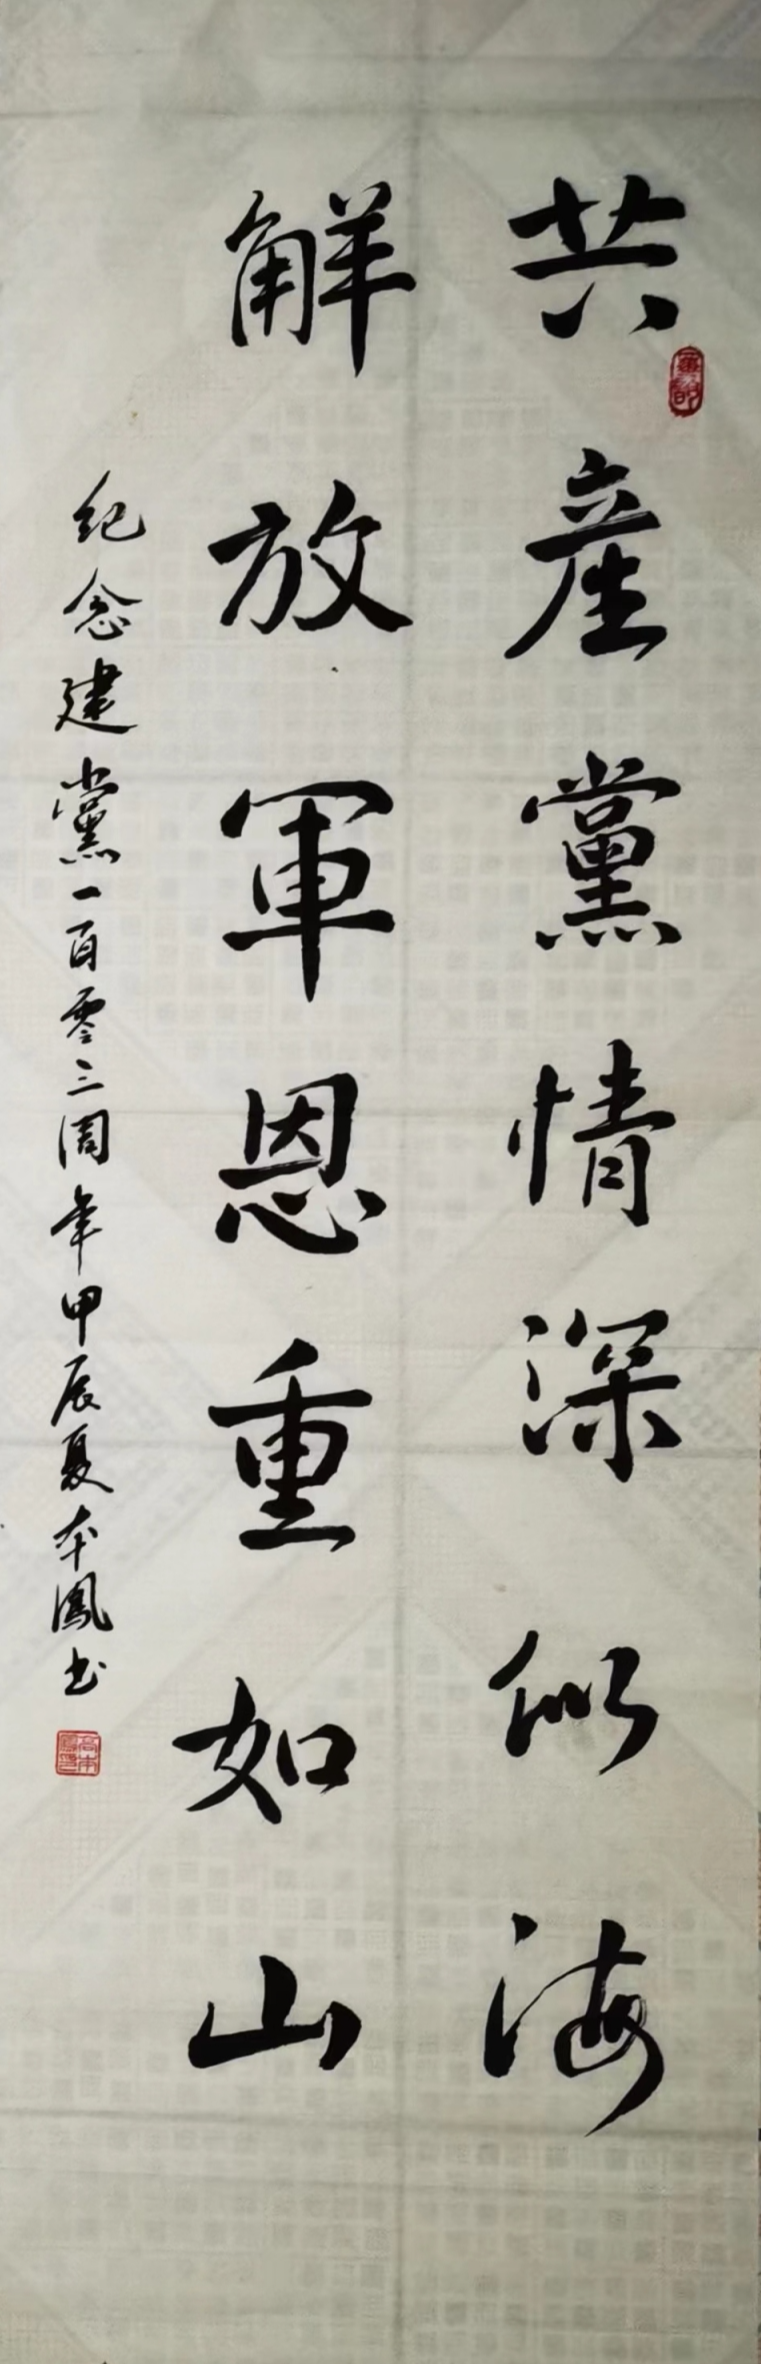 共產黨情深似海
解放軍恩重如山
纪念建黨一百零三周年甲辰夏本鳳书
高本鳳印